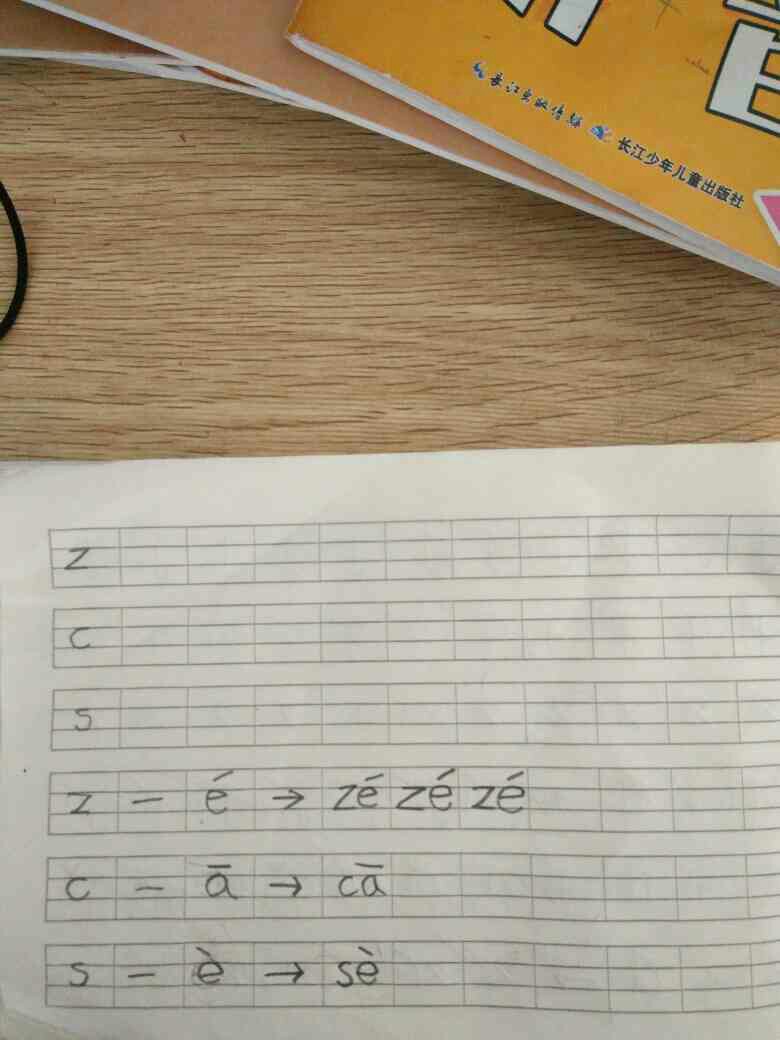 长江出版传媒 长江少年儿童出版社
z
c
s
z - é → zé zé zé
c - ā → cā
s - è → sè